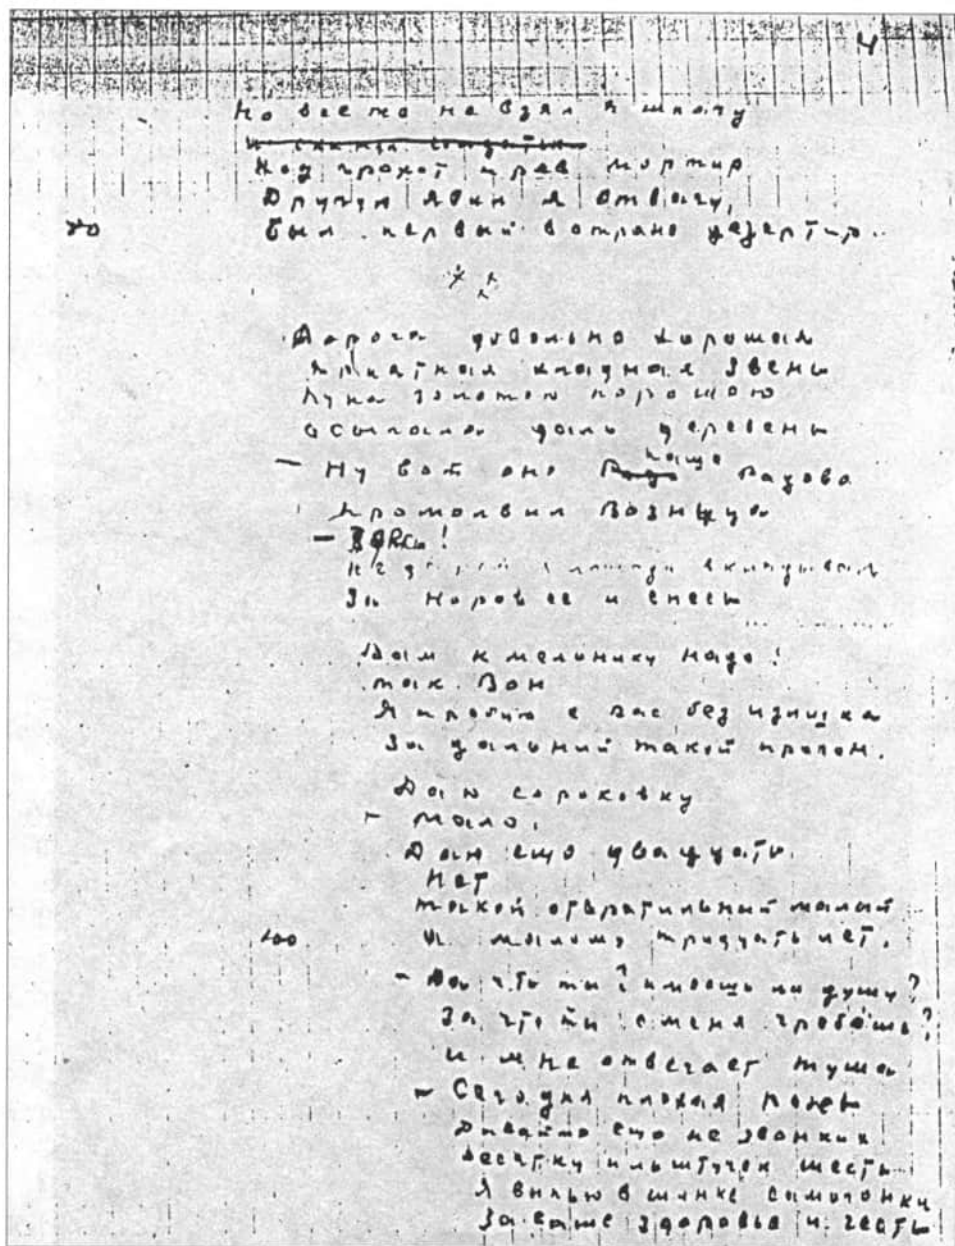 4
Но все же не взял я шпагу
Под грохот и рев мортир
Другую явил я отвагу,
80
Был первый в стране дезертир.
Дорога довольно хорошая
Приятная хладная звень
Луна золотою порошею
Осыпала даль деревень
— Ну вот оно наше Радово
Промолвил возница
— Здесь!
лошади вкладывал
За норов ее и спесь
Вам к мельнику надо?
так вон
Я требую с вас без излишка
За дальний такой прогон.
Даю сороковку
— мало.
Даю еще двадцать.
Нет
такой отвратительный малый
100
А малому тридцать лет.
— Да что ты? имеешь ли душу?
За что ты с меня гребешь?
И мне отвечает туша
— Сегодня плохая рожь
Давайте еще не звонких
Десятку иль штучек шесть
Я выпью в шинке самогонки
За ваше здоровье и честь